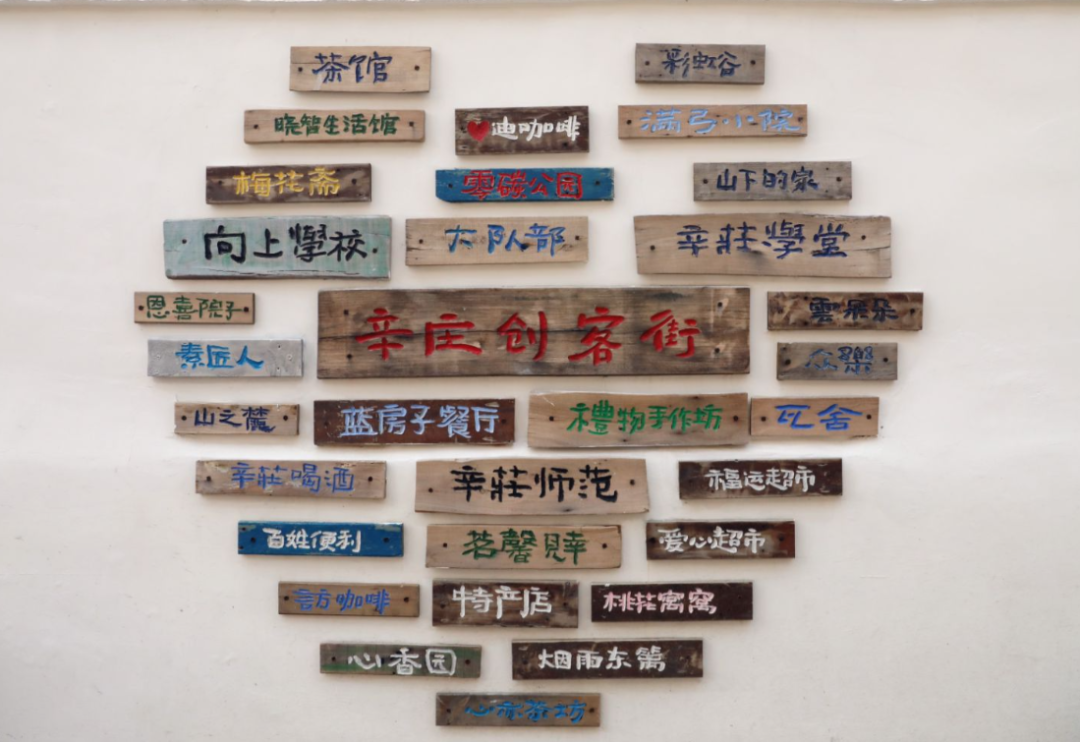 茶馆
彩虹谷
晓智生活馆
迪咖啡
满弓小院
梅花斋
零碳公园
山下的家
向上學校
大队部
辛莊學堂
恩喜院子
辛庄创客街
雲展朵
素匠人
众樂
山之麓
蓝房子餐厅
禮物手作坊
瓦舍
辛莊喝酒
辛莊师范
福运超市
百姓便利
茗馨見幸
爱心超市
言方咖啡
特产店
桃花窝窝
心香园
烟雨东篱